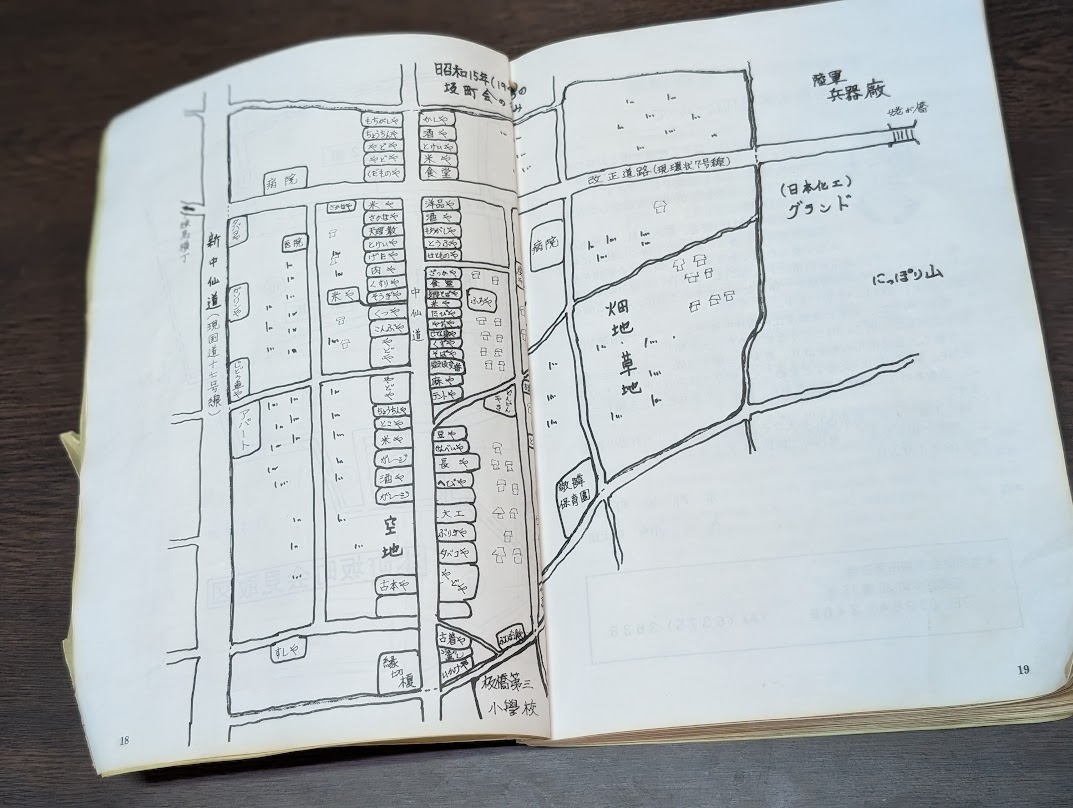 昭和15年(19
の
坂町会の
み
もちがしや
ちょうちんや
やどや
やどや
くだものや
かしや
酒や
とけいや
米や
食堂
病院
陸軍
兵器廠
改正道路(現環状7号線)
(日本化工)
グランド
にっぽり山
新中仙道(現国道十七号線)
中仙道
医院
さかなや
米や
さかなや
天理教
とけいや
げたや
肉や
くすりや
そうぎや
米や
くつや
こんぶや
やどや
洋品や
酒や
とうふや
はきものや
ざっかや
食堂
米や
たびや
そばや
ふろや
病院
畑地・草地
ガソリンや
アパート
やどや
ちょうちんや
とこや
米や
ガレージ
酒や
ガレージ
空地
古本や
豆や
せんべいや
長や
へびや
大工
ぶりきや
タバコや
やどや
保育園
すしや
縁切榎
古着や
いかけや
板橋第三
小學校
18
19